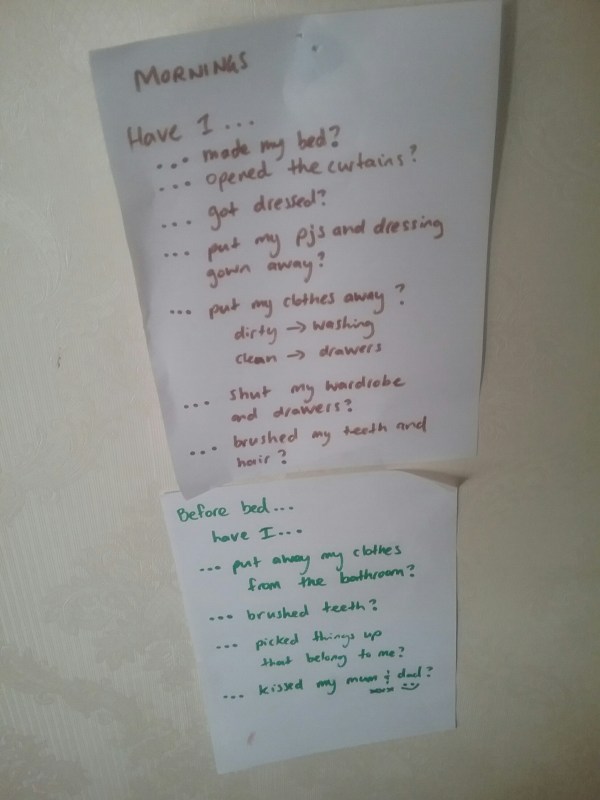 MORNINGS
Have I ...
... made my bed?
... opened the curtains?
... got dressed?
... put my pjs and dressing
gown away?
... put my clothes away?
dirty → washing
clean → drawers
... shut my wardrobe
and drawers?
... brushed my teeth and
hair?
Before bed...
have I...
... put away my clothes
from the bathroom?
... brushed teeth?
... picked things up
that belong to me?
... kissed my mum & dad?
xoxx ☺